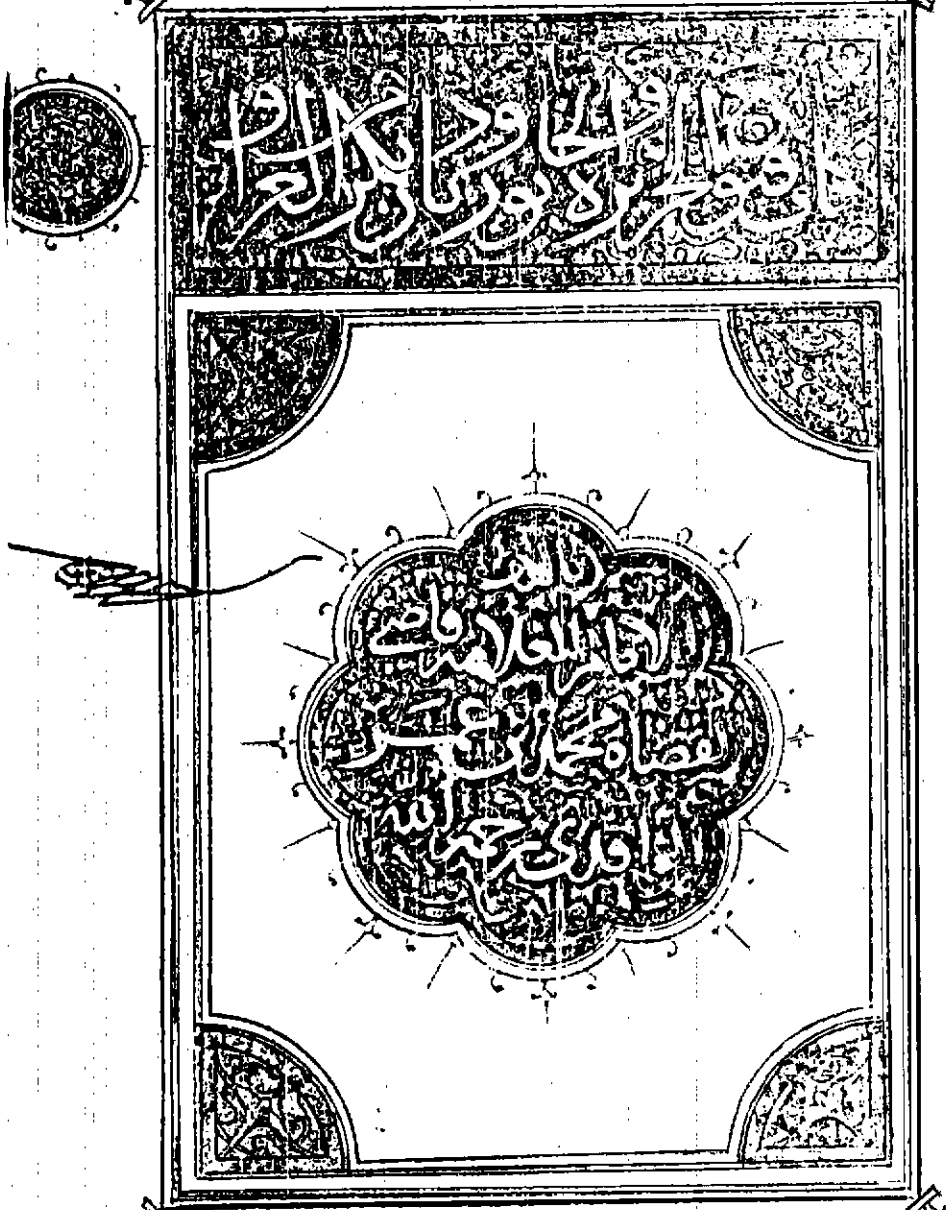 كتاب فتوح الجزيرة والخابور وديار بكر والعراق
تأليف
الامام العلامه قاضي
القضاه محمد بن عمر
الواقدى رحمه الله